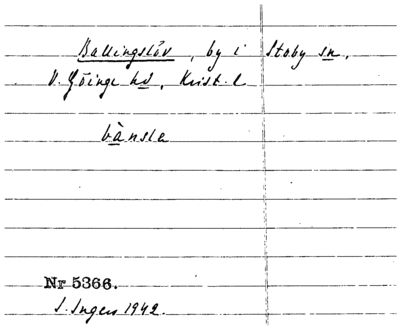 Ballingslöv, by i Stoby sn,
V. Göinge hd, Krist. l
bànsla
Nr 5366.
S. Ingers 1942.